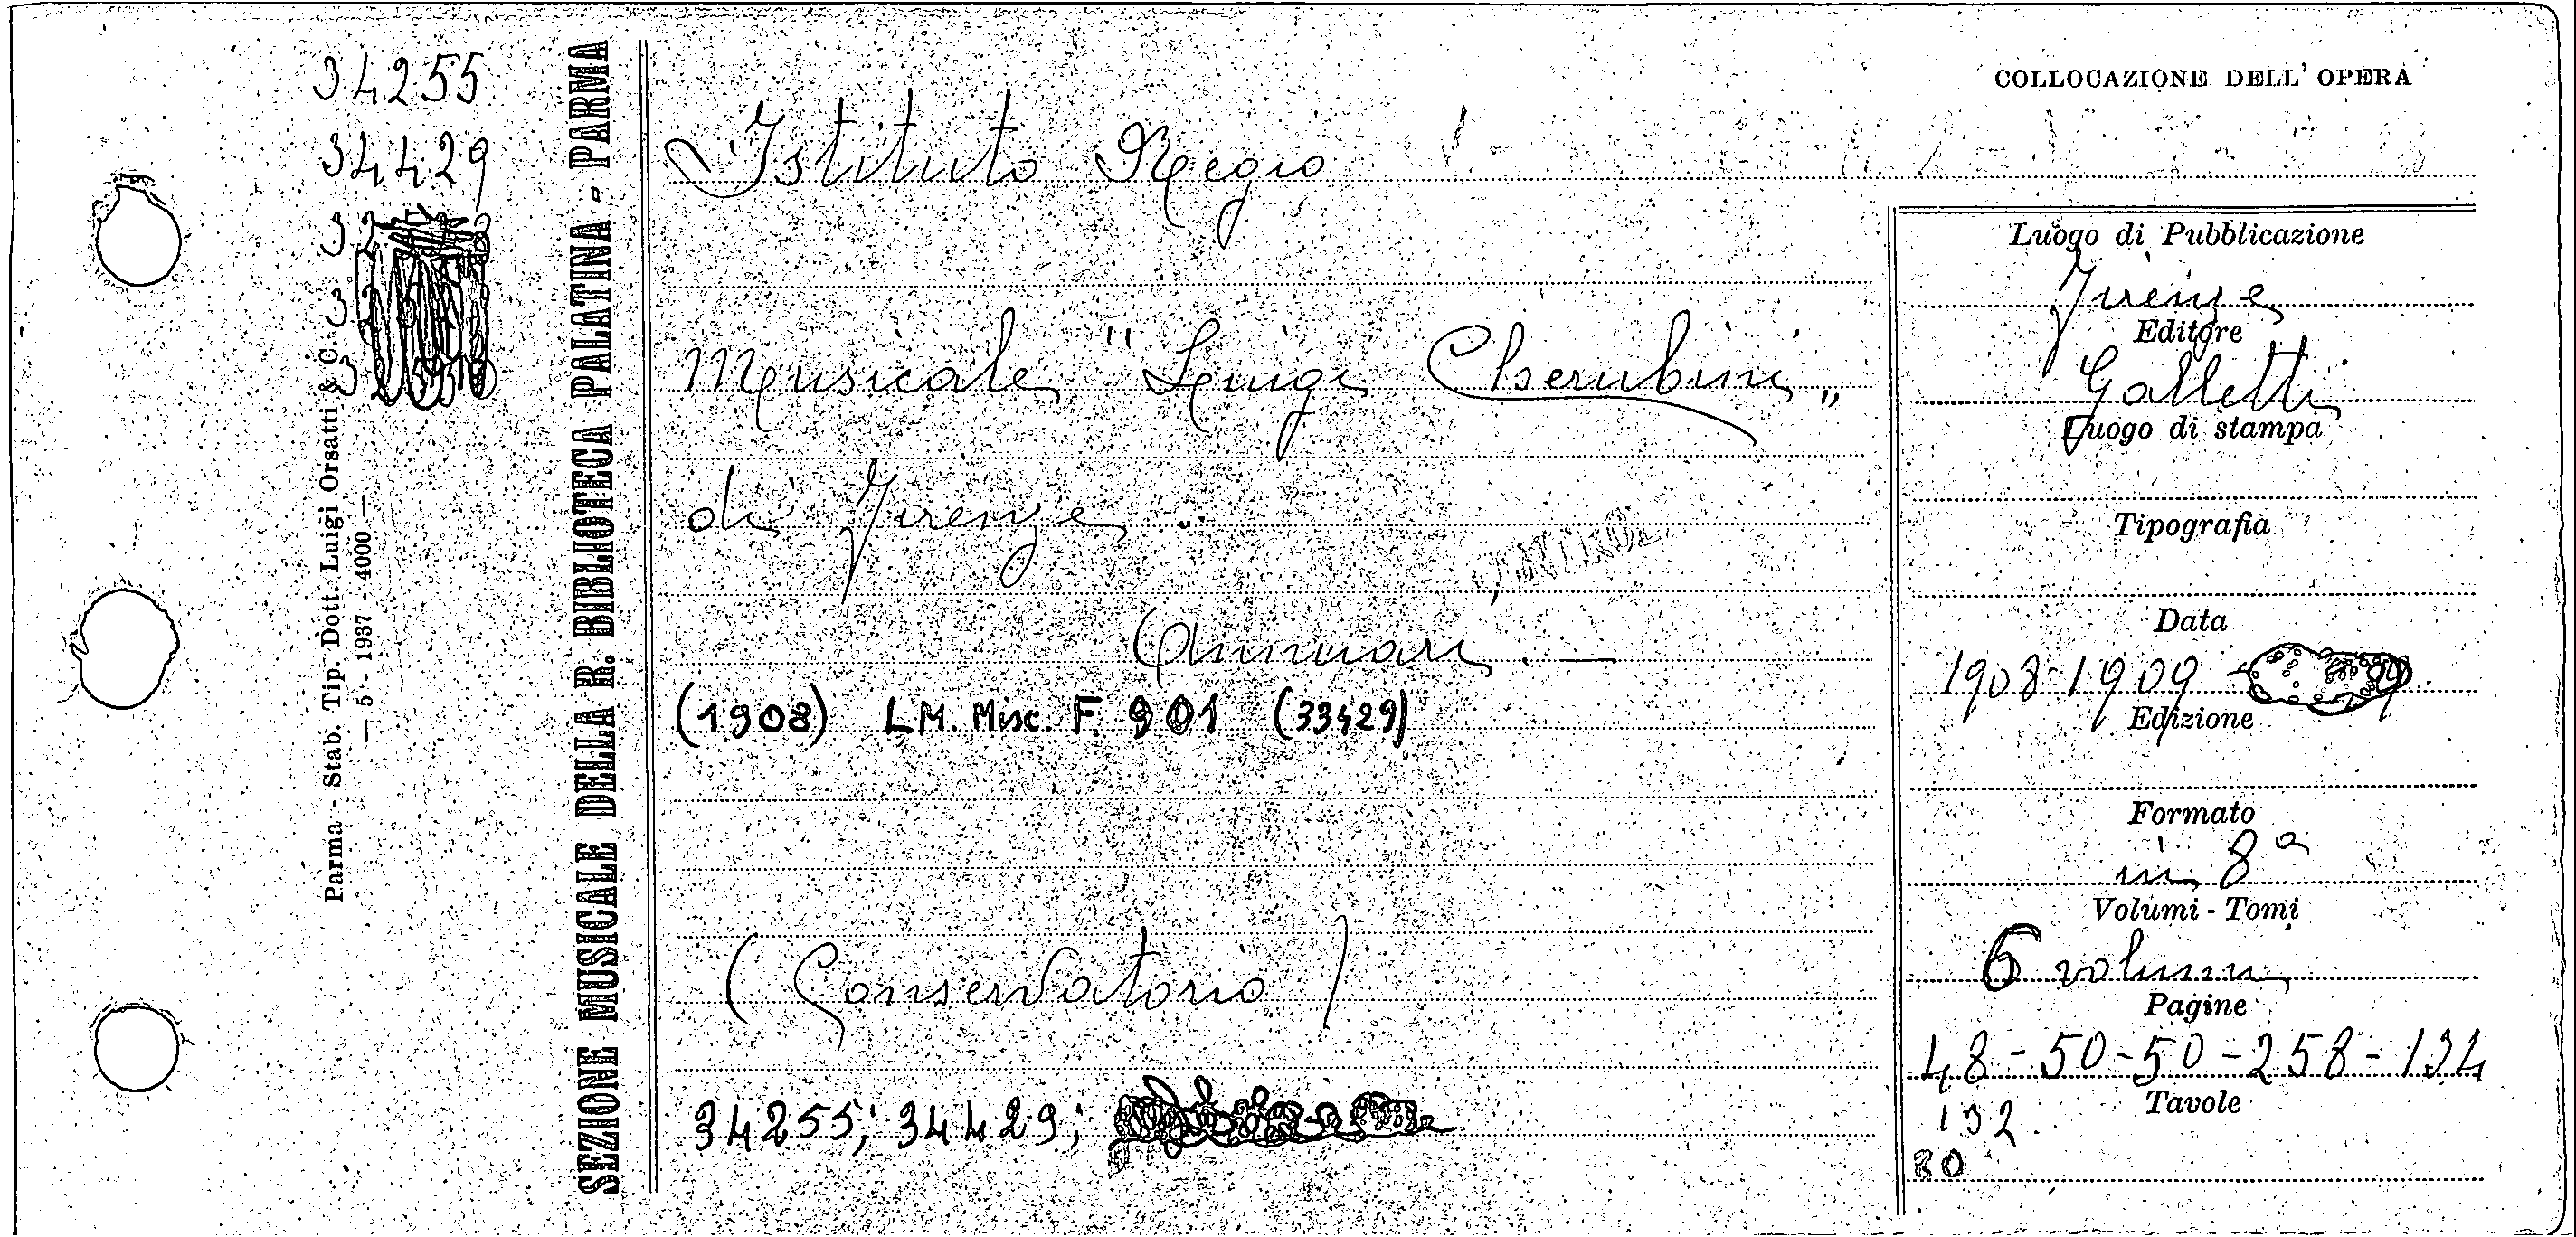 34255
34429
Parma - Stab. Tip. Dott. Luigi Orsatti & C.
— 5 - 1937 - 4000 —
SEZIONE MUSICALE DELLA R. BIBLIOTECA PALATINA - PARMA
Istituto Regio
Musicale "Luigi Cherubini„
di Firenze.
Annuari. —
(1908) L M. Misc. F. 901 (33429)
(Conservatorio)
34255; 34429;
COLLOCAZIONE DELL' OPERA
Luogo di Pubblicazione
Firenze
Editore
Galletti
Luogo di stampa
Tipografia
Data
1908-1909
Edizione
Formato
in 8°
Volumi - Tomi
6 volumi
Pagine
48-50-50-258-134
Tavole
132
80